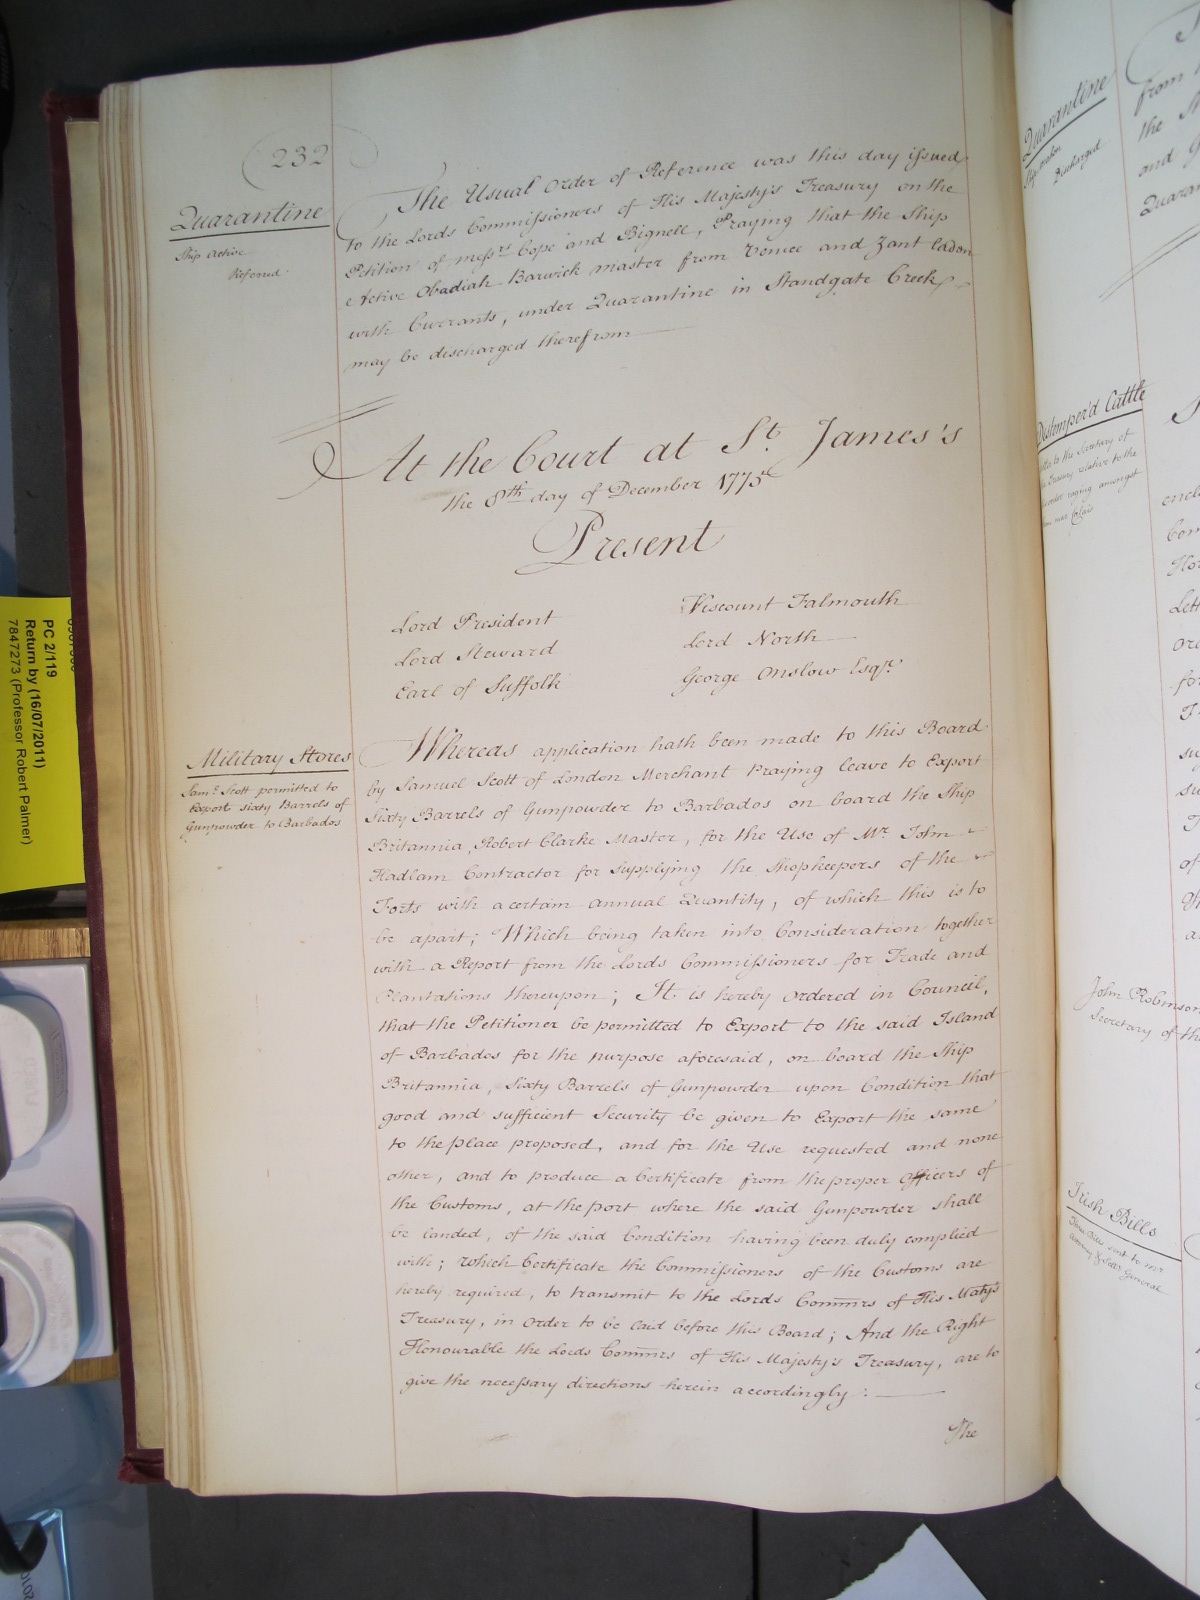 232
Quarantine
Ship Active
Referred
The Usual Order of Reference was this day issued
to the Lords Commissioners of His Majesty's Treasury on the
Petition of Mess.rs Cope and Bignell, Praying that the Ship
Active Obadiah Barwick master from Venice and Zant laden
with Currants, under Quarantine in Standgate Creek
may be discharged therefrom
At the Court at St. James's
the 8th day of December 1775
Present
Lord President
Lord Steward
Earl of Suffolk
Viscount Falmouth
Lord North
George Onslow Esqr.
Military Stores
Saml. Scott permitted to
Export sixty Barrels of
Gunpowder to Barbados
Whereas application hath been made to this Board
by Samuel Scott of London Merchant Praying leave to Export
Sixty Barrels of Gunpowder to Barbados on board the Ship
Britannia, Robert Clarke Master, for the Use of Mr. John
Hadlam Contractor for supplying the Shopkeepers of the
Forts with a certain annual Quantity, of which this is to
be apart; Which being taken into Consideration together
with a Report from the Lords Commissioners for Trade and
Plantations thereupon; It is hereby ordered in Council,
that the Petitioner be permitted to Export to the said Island
of Barbados for the purpose aforesaid, on board the Ship
Britannia, Sixty Barrels of Gunpowder upon Condition that
good and sufficient Security be given to Export the same
to the place proposed, and for the Use requested and none
other, and to produce a Certificate from the proper Officers of
the Customs, at the port where the said Gunpowder shall
be landed, of the said Condition having been duly complied
with; which Certificate the Commissioners of the Customs are
hereby required, to transmit to the Lords Commrs of His Maty's
Treasury, in order to be laid before this Board; And the Right
Honourable the Lords Commrs of His Majesty's Treasury, are to
give the necessary directions herein accordingly:
The
PC 2/119
Return by (16/07/2011)
7847273 (Professor Robert Palmer)
Quarantine
Discharged
from
the
and
Quaran
Distemper'd Cattle
to the Secretary of
Treasury relative to the
raging amongst
near Calais
John Robinson
Secretary of the
Irish Bills
sent to Mr
General